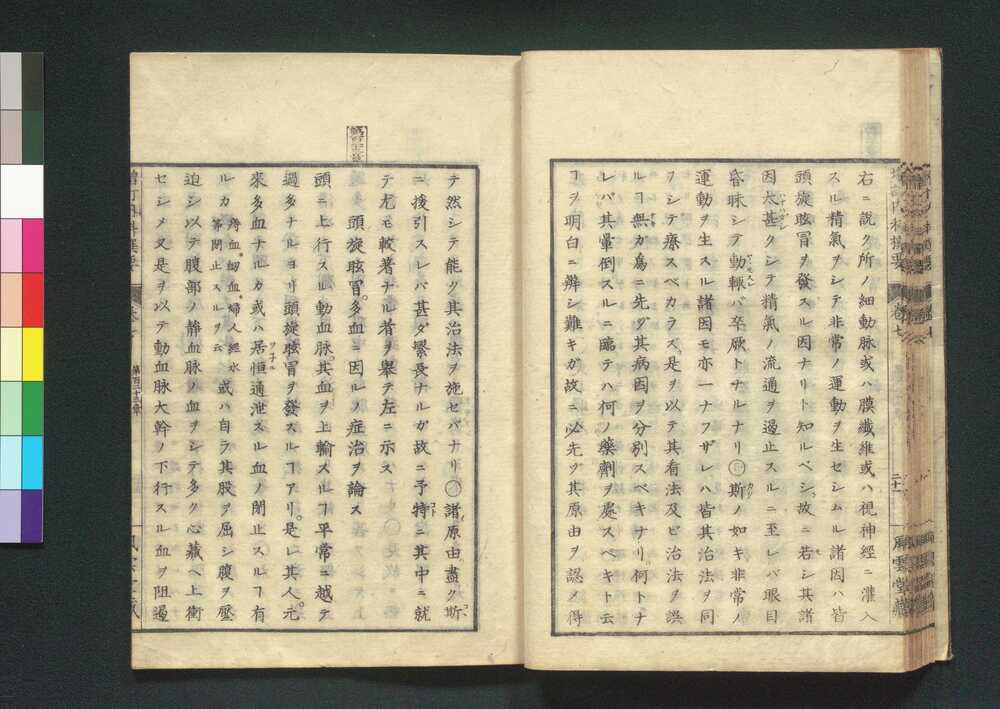 右ニ說ク所ノ細動脉或ハ膜纖維或ハ視神經ニ灌入
スル精氣ヲシテ非常ノ運動ヲ生セシムル諸因ハ皆
頭旋眩冒ヲ發スル因ナリト知ルベシ故ニ若シ其諸
因太甚クシテ精氣ノ流通ヲ遏止スルニ至レバ眼目
昏昧シテ動輙バ卒厥トナルナリ斯ノ如キ非常ノ
運動ヲ生スル諸因モ亦一ナラザレハ皆其治法ヲ同
ヲシテ療スベカラズ是ヲ以テ其看法及ビ治法ヲ誤
ルヿ無カ爲ニ先ヅ其病因ヲ分別スベキナリ何トナ
レバ其暈倒スルニ臨テハ何ノ藥劑ヲ處スベキト云
ヿヲ明白ニ辨シ難キガ故ニ必先ヅ其原由ヲ認メ得
卷七
風雲堂藏
テ然シテ能ク其治法ヲ施セバナリ○諸原由盡ク斯
ニ援引スレバ甚ダ繁長ナルガ故ニ予特ニ其中ニ就
テ尤モ較著ナル者ヲ擧テ左ニ示ス
頭旋眩冒多血ニ因ルノ症治ヲ論ス
頭ニ上行スル動血脉其血ヲ上輸スルヿ平常ニ越テ
過多ナルヨリ頭旋眩冒ヲ發スルヿアリ是レ其人元
來多血ナルカ或ハ居恒通泄スル血ノ閉止スルヿ有
ルカ 痔血衂血婦人經水等閉止スルヲ云 或ハ自ラ其股ヲ屈シ腹ヲ壓
迫シ以テ腹部ノ静脉ノ血ヲシテ多ク心藏ヘ上衝
セシメ又是ヲ以テ動血脉大幹ノ下行スル血ヲ阻遏